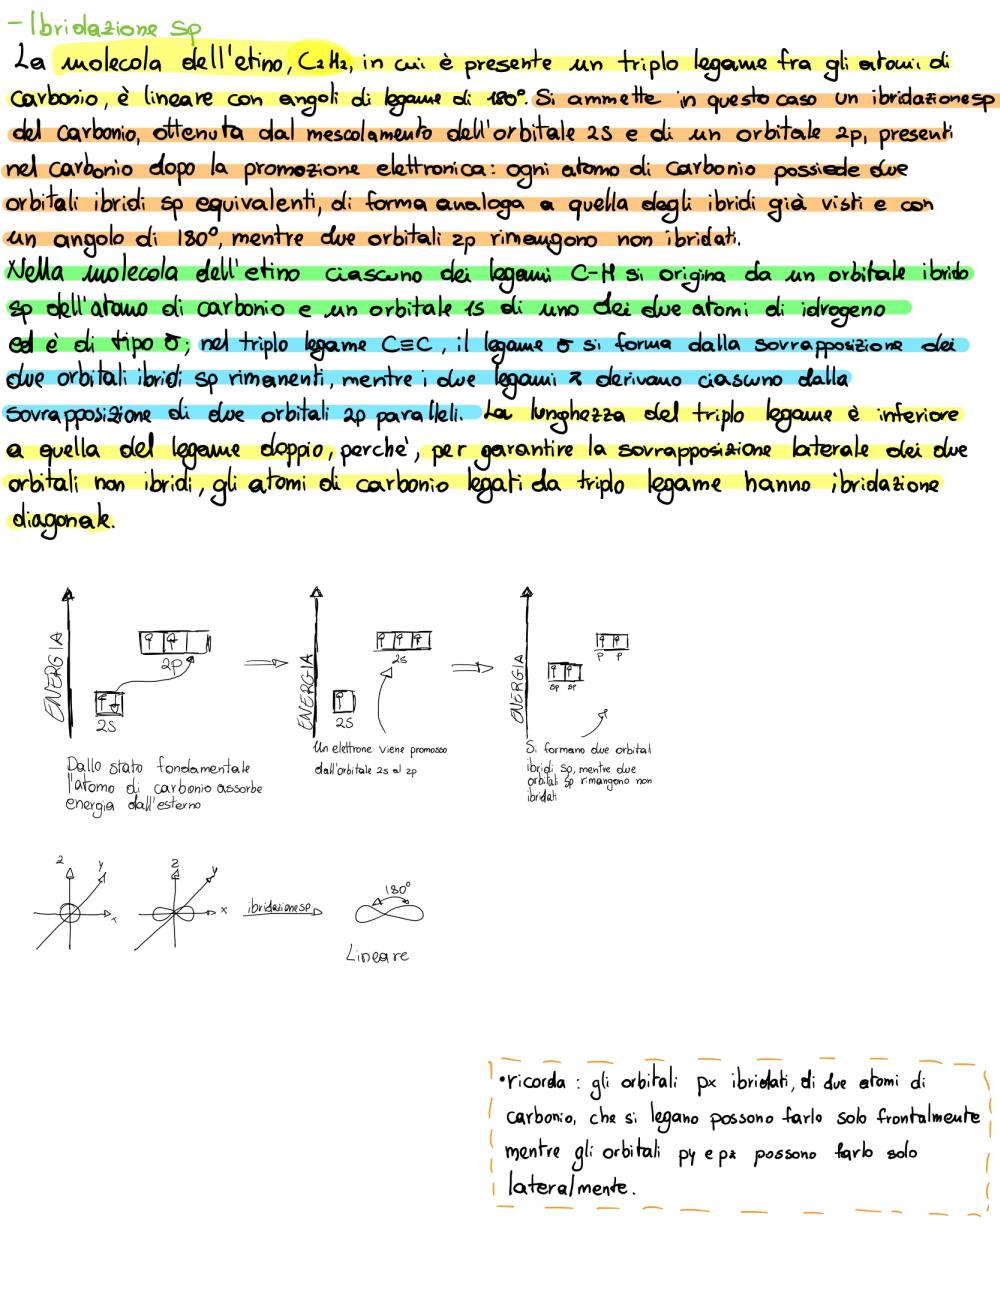 - Ibridazione sp
La molecola dell'etino, C₂H₂, in cui è presente un triplo legame fra gli atomi di
carbonio, è lineare con angoli di legame di 180°. Si ammette in questo caso un ibridazione sp
del carbonio, ottenuta dal mescolamento dell'orbitale 2s e di un orbitale 2p, presenti
nel carbonio dopo la promozione elettronica: ogni atomo di carbonio possiede due
orbitali ibridi sp equivalenti, di forma analoga a quella degli ibridi già visti e con
un angolo di 180°, mentre due orbitali 2p rimangono non ibridati.
Nella molecola dell'etino ciascuno dei legami C-H si origina da un orbitale ibrido
sp dell'atomo di carbonio e un orbitale 1s di uno dei due atomi di idrogeno
ed è di tipo σ; nel triplo legame C≡C, il legame σ si forma dalla sovrapposizione dei
due orbitali ibridi sp rimanenti, mentre i due legami π derivano ciascuno dalla
sovrapposizione di due orbitali 2p paralleli. La lunghezza del triplo legame è inferiore
a quella del legame doppio, perchè, per garantire la sovrapposizione laterale dei due
orbitali non ibridi, gli atomi di carbonio legati da triplo legame hanno ibridazione
diagonale.
ENERGIA
2p
2s
Dallo stato fondamentale
l'atomo di carbonio assorbe
energia dall'esterno
ENERGIA
2s
2s
Un elettrone viene promosso
dall'orbitale 2s al 2p
ENERGIA
p p
sp sp
Si formano due orbital
ibridi sp, mentre due
orbitali sp rimangono non
ibridati
z y x
z y x
ibridazione sp
180°
Lineare
• ricorda : gli orbitali px ibridati, di due atomi di
carbonio, che si legano possono farlo solo frontalmente
mentre gli orbitali py e pz possono farlo solo
lateralmente.